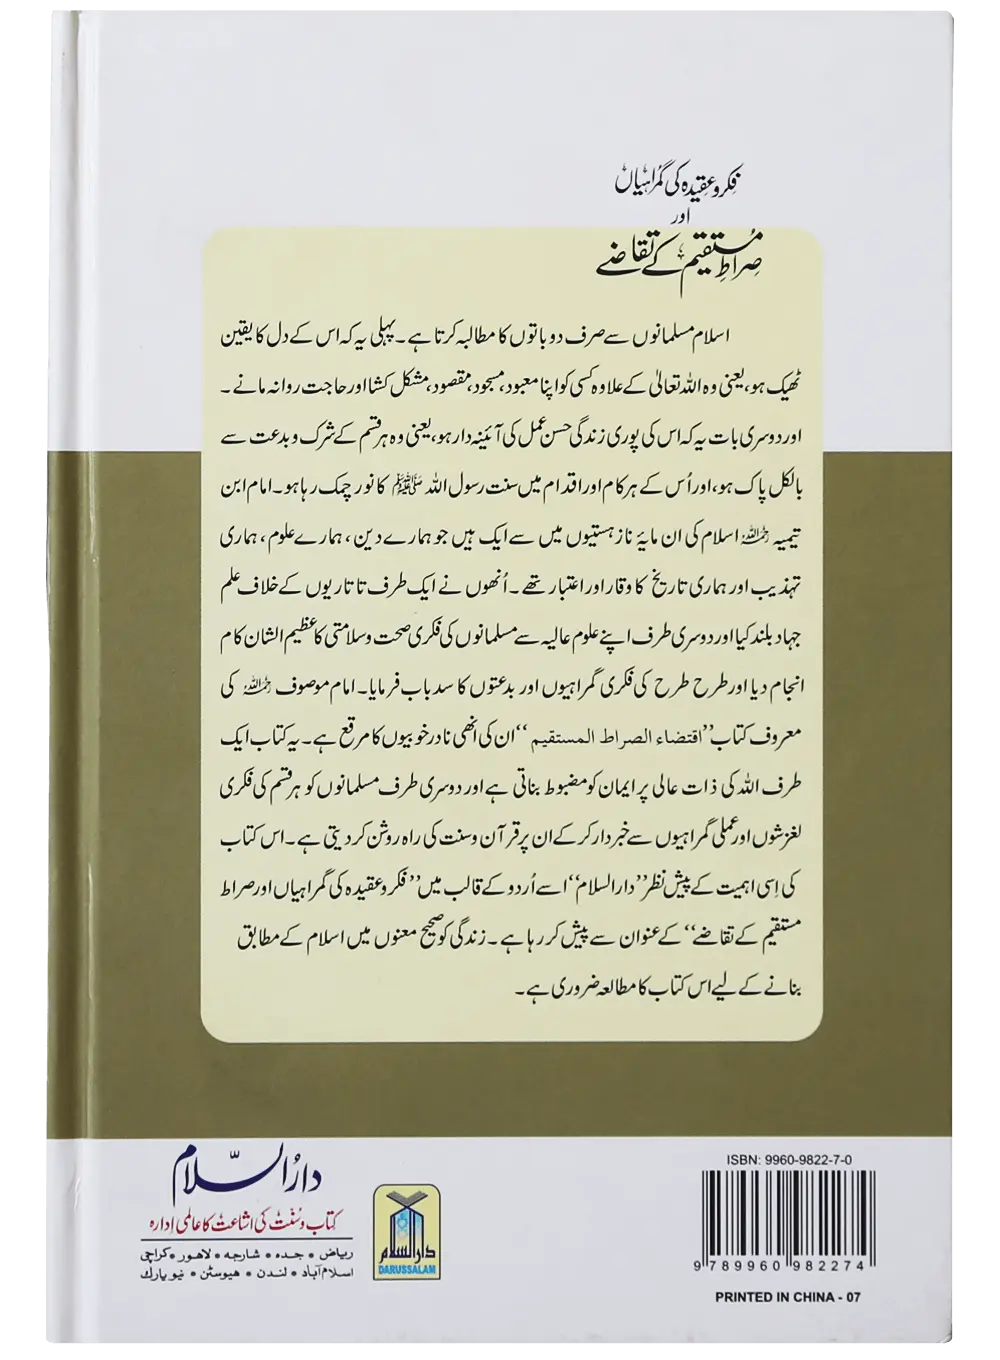 فکر و عقیدہ کی گمراہیاں
اور
صراطِ مستقیم کے تقاضے
اسلام مسلمانوں سے صرف دو باتوں کا مطالبہ کرتا ہے۔ پہلی یہ کہ اس کے دل کا یقین
ٹھیک ہو، یعنی وہ اللہ تعالیٰ کے علاوہ کسی کو اپنا معبود، مسجود، مقصود، مشکل کشا اور حاجت روا نہ مانے۔
اور دوسری بات یہ کہ اس کی پوری زندگی حسن عمل کی آئینہ دار ہو، یعنی وہ ہر قسم کے شرک و بدعت سے
بالکل پاک ہو، اور اُس کے ہر کام اور اقدام میں سنت رسول اللہ ﷺ کا نور چمک رہا ہو۔ امام ابن
تیمیہ رحمہ اللہ اسلام کی ان مایۂ ناز ہستیوں میں سے ایک ہیں جو ہمارے دین، ہمارے علوم، ہماری
تہذیب اور ہماری تاریخ کا وقار اور اعتبار تھے۔ اُنھوں نے ایک طرف تاتاریوں کے خلاف علم
جہاد بلند کیا اور دوسری طرف اپنے علوم عالیہ سے مسلمانوں کی فکری صحت و سلامتی کا عظیم الشان کام
انجام دیا اور طرح طرح کی فکری گمراہیوں اور بدعتوں کا سدباب فرمایا۔ امام موصوف رحمہ اللہ کی
معروف کتاب ”اقتضاء الصراط المستقيم“ ان کی انھی نادر خوبیوں کا مرقع ہے۔ یہ کتاب ایک
طرف اللہ کی ذات عالی پر ایمان کو مضبوط بناتی ہے اور دوسری طرف مسلمانوں کو ہر قسم کی فکری
لغزشوں اور عملی گمراہیوں سے خبردار کر کے ان پر قرآن و سنت کی راہ روشن کر دیتی ہے۔ اس کتاب
کی اِسی اہمیت کے پیش نظر ”دارالسلام“ اسے اُردو کے قالب میں ”فکر و عقیدہ کی گمراہیاں اور صراط
مستقیم کے تقاضے“ کے عنوان سے پیش کر رہا ہے۔ زندگی کو صحیح معنوں میں اسلام کے مطابق
بنانے کے لیے اس کتاب کا مطالعہ ضروری ہے۔
دارالسلام
کتاب و سنت کی اشاعت کا عالمی ادارہ
ریاض • جدہ • شارجہ • لاہور • کراچی
اسلام آباد • لندن • ہیوسٹن • نیو یارک
دارالسلام
DARUSSALAM
ISBN: 9960-9822-7-0
9 789960 982274
PRINTED IN CHINA - 07